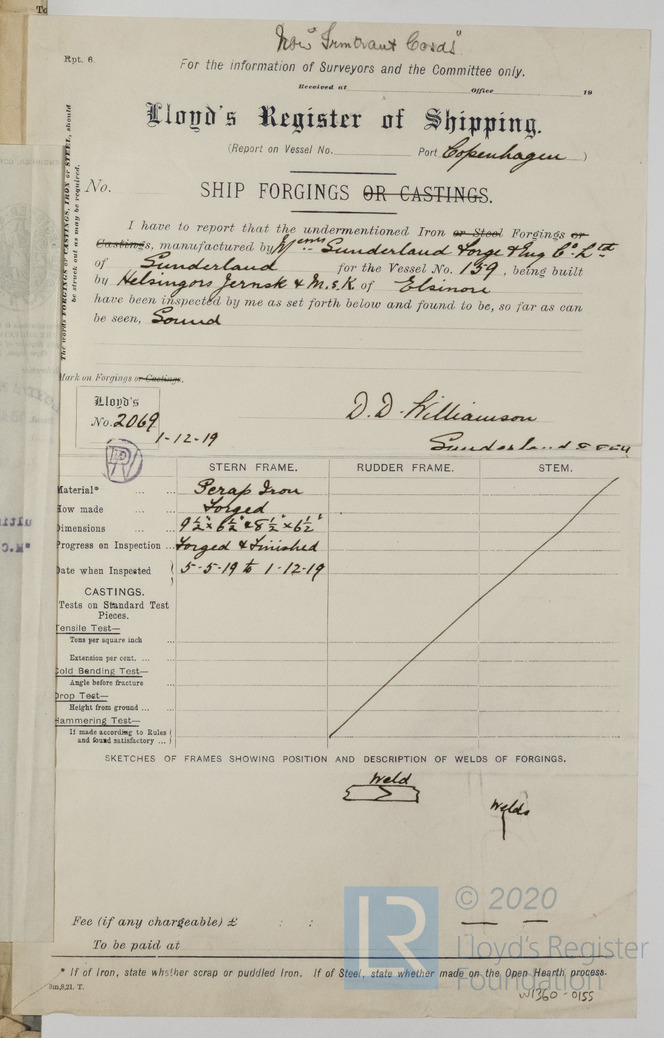 Now
Rpt. 6.
For the information of Surveyors and the Committee only.
Received at Office 19
Lloyd's Register of Shipping.
(Report on Vessel No. Port Copenhagen )
No.
SHIP FORGINGS OR CASTINGS.
The words FORGINGS or CASTINGS, IRON or STEEL, should
be struck out as may be required.
I have to report that the undermentioned Iron or Steel Forgings or
Castings, manufactured by Messrs Sunderland Forge & Eng Co. Ltd
of Sunderland for the Vessel No. 159, being built
by Helsingors Jernsk & M.S.K. of Elsinore
have been inspected by me as set forth below and found to be, so far as can
be seen, Sound
Mark on Forgings or Castings.
Lloyd's
No. 2069
1-12-19
D. D. Williamson
Sunderland
STERN FRAME. RUDDER FRAME. STEM.
Material* ... ... Scrap Iron
How made ... ... Forged
Dimensions ... ... 9½" x 6½" & 8½" x 6½"
Progress on Inspection ... Forged & Finished
Date when Inspected 5-5-19 to 1-12-19
CASTINGS.
Tests on Standard Test
Pieces.
Tensile Test—
Tons per square inch ...
Extension per cent. ... ...
Cold Bending Test—
Angle before fracture ...
Drop Test—
Height from ground ... ...
Hammering Test—
If made according to Rules
and found satisfactory ...
SKETCHES OF FRAMES SHOWING POSITION AND DESCRIPTION OF WELDS OF FORGINGS.
Weld
Welds
Fee (if any chargeable) £ : :
To be paid at
* If of Iron, state whether scrap or puddled Iron. If of Steel, state whether made on the Open Hearth process.
8m,8,21. T.
LR
© 2020
Lloyd's Register
Foundation
W1360-0155